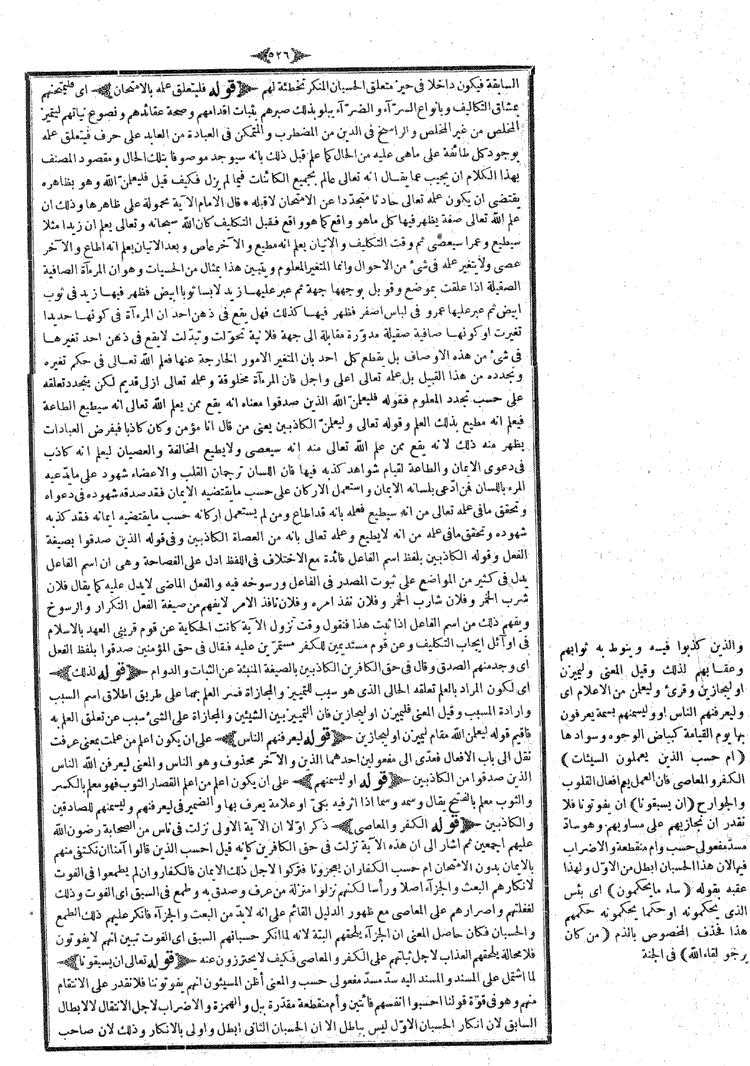 ٥٢٦
السابقة فيكون داخلا فى حيز متعلق الحسبان المنكر تخطئة لهم ﴿ قوله فليتعلق علمه بالامتحان ﴾ اى فليمتحننهم
بمشاق التكاليف وبانواع السرآء والضرآء يبلو بذلك صبرهم بثبات اقدامهم وصحة عقائدهم ونصوع نياتهم ليتميز
المخلص من غير المخلص والراسخ فى الدين من المضطرب والمتمكن فى العبادة من العابد على حرف فيتعلق علمه
بوجود كل طائفة على ماهى عليه من الحال كما علم قبل ذلك بانه سيوجد موصوفا بتلك الحال ومقصود المصنف
بهذا الكلام ان يجيب عما يقال انه تعالى عالم بجميع الكائنات فيما لم يزل فكيف قيل فليعلمن الله وهو بظاهره
يقتضى ان يكون علمه تعالى حادثا متجددا عن الامتحان لاقبله * قال الامام الآية محمولة على ظاهرها وذلك ان
علم الله تعالى صفة يظهر فيها كل ماهو واقع كما هو واقع فقبل التكليف كان الله سبحانه وتعالى يعلم ان زيدا مثلا
سيطيع وعمرا سيعصى ثم وقت التكليف والاتيان يعلم انه مطيع والآخر عاص وبعد الاتيان يعلم انه اطاع والآخر
عصى ولا يتغير علمه فى شئ من الاحوال وانما المتغير المعلوم ويتبين هذا بمثال من الحسيات وهو ان المرءآة الصافية
الصقيلة اذا علقت بموضع وقوبل بوجهها جهة ثم عبر عليها زيد لابسا ثوبا ابيض فظهر فيها زيد فى ثوب
ابيض ثم عبر عليها عمرو فى لباس اصفر فظهر فيها كذلك فهل يقع فى ذهن احد ان المرءآة فى كونها حديدا
تغيرت او كونها صافية صقيلة مدورة مقابلة الى جهة فلانية تحولت وتبدلت لايقع فى ذهن احد تغيرها
فى شئ من هذه الاوصاف بل يقطع كل احد بان المتغير الامور الخارجة عنها فعلم الله تعالى فى حكم تغيره
وتجدده من هذا القبيل بل علمه تعالى اعلى واجل فان المرءآة مخلوقة وعلمه تعالى ازلى قديم لكن يتجدد تعلقه
على حسب تجدد المعلوم فقوله فليعلمن الله الذين صدقوا معناه انه يقع ممن يعلم الله تعالى انه سيطيع الطاعة
فيعلم انه مطيع بذلك العلم وقوله تعالى وليعلمن الكاذبين يعنى من قال انا مؤمن وكان كاذبا فبفرض العبادات
يظهر منه ذلك لانه يقع ممن علم الله تعالى منه انه سيعصى ولايطيع المخالفة والعصيان ليعلم انه كاذب
فى دعوى الايمان والطاعة لقيام شواهد كذبه فيها فان اللسان ترجمان القلب والاعضاء شهود على مايدعيه
المرء باللسان فمن ادعى بلسانه الايمان واستعمل الاركان على حسب مايقتضيه الايمان فقد صدقه شهوده فى دعواه
وتحقق مافى علمه تعالى من انه سيطيع فعلمه بانه قد اطاع ومن لم يستعمل اركانه حسب مايقتضيه ايمانه فقد كذبه
شهوده وتحقق مافى علمه من انه لايطيع وعلمه تعالى بانه من العصاة الكاذبين وفى قوله الذين صدقوا بصيغة
الفعل وقوله الكاذبين بلفظ اسم الفاعل فائدة مع الاختلاف فى اللفظ ادل على الفصاحة وهى ان اسم الفاعل
يدل فى كثير من المواضع على ثبوت المصدر فى الفاعل ورسوخه فيه والفعل الماضى لايدل عليه كما يقال فلان
شرب الخمر وفلان شارب الخمر وفلان نفذ امره وفلان نافذ الامر لايفهم من صيغة الفعل التكرار والرسوخ
ويفهم ذلك من اسم الفاعل اذا ثبت هذا فنقول وقت نزول الآية كانت الحكاية عن قوم قريبى العهد بالاسلام
فى اوآئل ايجاب التكاليف وعن قوم مستديمين للكفر مستمرين عليه فقال فى حق المؤمنين صدقوا بلفظ الفعل
اى وجد منهم الصدق وقال فى حق الكافرين الكاذبين بالصيغة المنبئة عن الثبات والدوام ﴿ قوله لذلك ﴾
اى لكون المراد بالعلم تعلقه الحالى الذى هو سبب للتمييز والمجازاة فسر العلم بهما على طريق اطلاق اسم السبب
وارادة المسبب وقيل المعنى فليميزن او ليجازين فان التمييز بين الشيئين والمجازاة على الشئ سبب عن تعلق العلم به
فاقيم قوله ليعلمن الله مقام ليميزن او ليجازين ﴿ قوله ليعرفنهم الناس ﴾ على ان يكون اعلم من علمت بمعنى عرفت
نقل الى باب الافعال فعدى الى مفعولين احدهما الذين والآخر محذوف وهو الناس والمعنى ليعرفن الله الناس
الذين صدقوا من الكاذبين ﴿ قوله او ليسمنهم ﴾ على ان يكون اعلم من اعلم القصار الثوب فهو معلم بالكسر
والثوب معلم بالفتح يقال وسمه وسما اذا اثر فيه بكى او علامة يعرف بها والضمير فى ليعرفنهم وليسمنهم للصادقين
والكاذبين ﴿ قوله الكفر والمعاصى ﴾ ذكر اولا ان الآية الاولى نزلت فى ناس من الصحابة رضون الله
عليهم اجمعين ثم اشار الى ان هذه الآية نزلت فى حق الكافرين كانه قيل احسب الذين قالوا آمنا ان نكتفى منهم
بالايمان بدون الامتحان ام حسب الكفار ان يعجزونا فتركوا لاجل ذلك الايمان فالكفار وان لم يطمعوا فى الفوت
لانكارهم البعث والجزآء اصلا ورأسا لكنهم نزلوا منزلة من عرف وصدق به وطمع فى السبق اى الفوت وذلك
لغفلتهم واصرارهم على المعاصى مع ظهور الدليل القائم على انه لابد من البعث والجزآء فانكر عليهم ذلك الطمع
والحسبان فكان حاصل المعنى ان الجزآء يلحقهم البتة لانه لما انكر حسبانهم السبق اى الفوت تبين انهم لايفوتون
فلا محالة يلحقهم العذاب لاجل ثباتهم على الكفر والمعاصى فكيف لايحترزون عنه ﴿ قوله تعالى ان يسبقونا ﴾
لما اشتمل على المسند والمسند اليه سد مسد مفعولى حسب والمعنى أظن المسيئون انهم يفوتوننا فلا نقدر على الانتقام
منهم وهو فى قوة قولنا احسبوا انفسهم فائتين وأم منقطعة مقدرة ببل والهمزة والاضراب لاجل الانتقال لالابطال
السابق لان انكار الحسبان الاول ليس بباطل الا ان الحسبان الثانى ابطل واولى بالانكار وذلك لان صاحب
والذين كذبوا فيه وينوط به ثوابهم
وعقابهم لذلك وقيل المعنى وليميزن
او ليجازين وقرئ وليعلمن من الاعلام اى
وليعرفنهم الناس او وليسمنهم بسمة يعرفون
بها يوم القيامة كبياض الوجوه وسوادها
( ام حسب الذين يعملون السيئات )
الكفر والمعاصى فان العمل يعم افعال القلوب
والجوارح ( ان يسبقونا ) ان يفوتونا فلا
نقدر ان نجازيهم على مساويهم وهو ساد
مسد مفعولى حسب وام منقطعة والاضراب
فيها لان هذا الحسبان ابطل من الاول ولهذا
عقبه بقوله ( ساء مايحكمون ) اى بئس
الذى يحكمونه او حكما يحكمونه حكمهم
هذا فحذف المخصوص بالذم ( من كان
يرجو لقاء الله ) فى الجنة